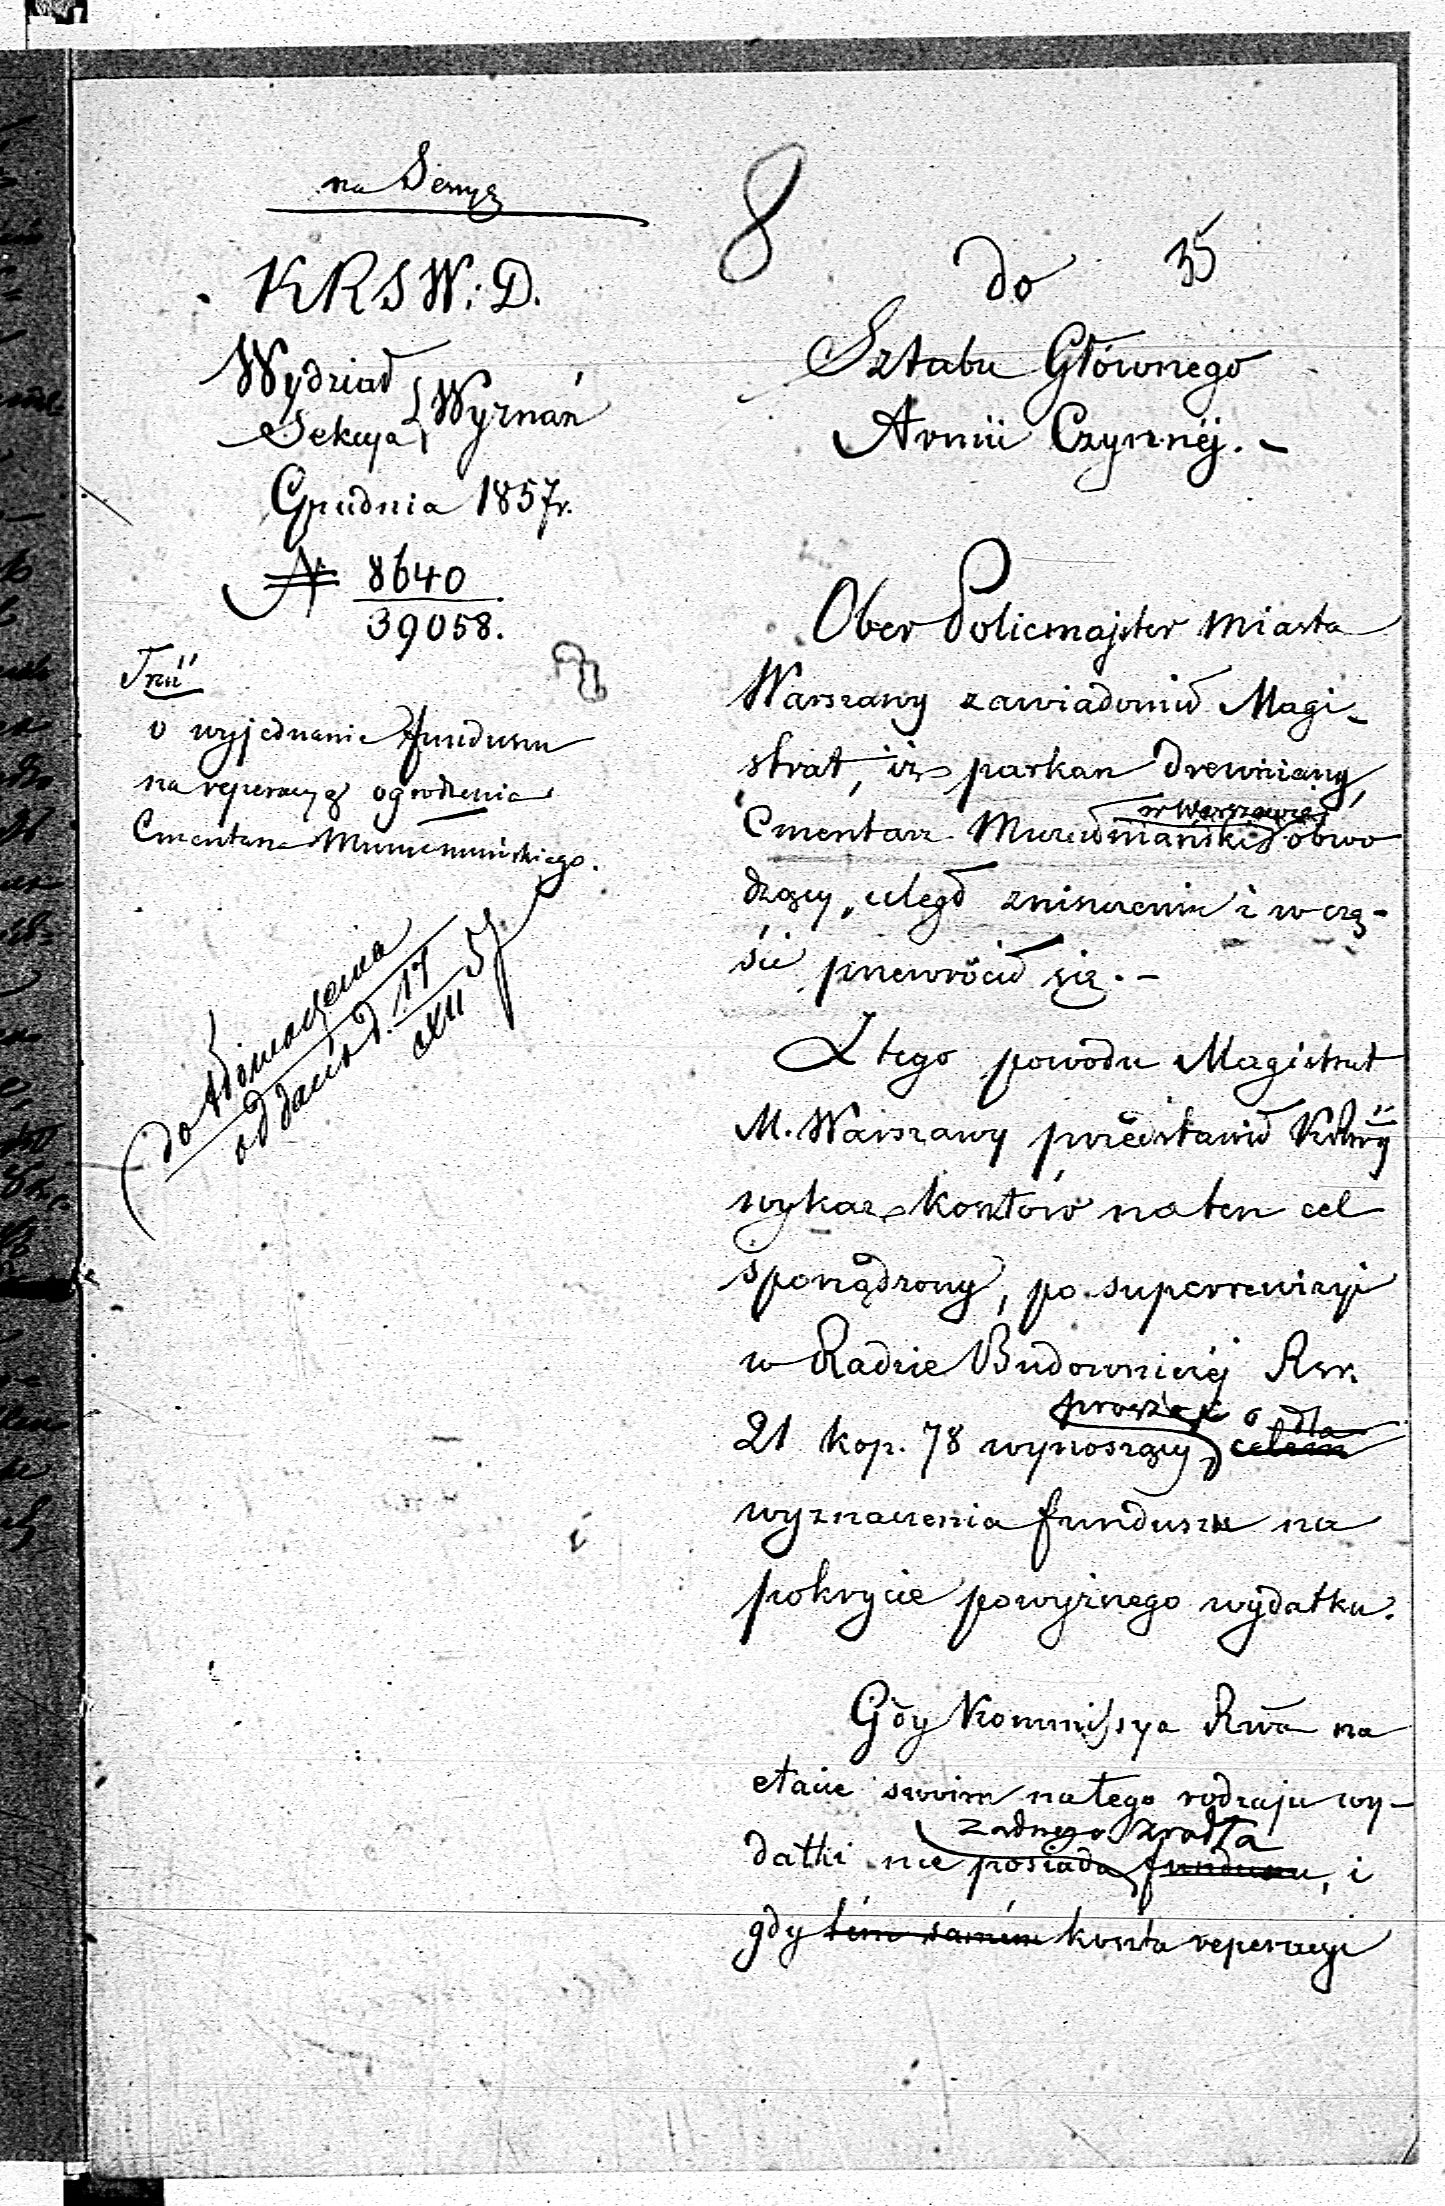 na Sessyą
8
35
KRSW. D.
Wydział
Sekcya } Wyznań
Grudnia 1857 r.
N 8640
39058.
o wyjednanie funduszu
na reperacyą ogrodzenia
Cmentarza Muzułmańskiego.
do tłómaczenia
oddano d. 17/XII 57
do
Sztabu Głównego
Armii Czynnéj. -
Ober Policmajster Miasta
Warszawy zawiadomił Magi-
strat, iż parkan drewniany,
w Warszawie
Cmentarz Muzułmański obwo
dzący, uległ zniszczeniu i w czę-
ści przewrócił się. -
Z tego powodu Magistrat
M. Warszawy przedstawił
wykaz kosztów na ten cel
sporządzony, po superrewizyi
w Radzie Budowniczéj Rsr.
prosząc o dla
21 kop. 78 wynoszący, celem
wyznaczenia funduszu na
pokrycie powyższego wydatku.
Gdy Kommissya Rwa na
etacie swoim na tego rodzaju wy-
żadnego źródła
datki nie posiada funduszu, i
gdy tém samém koszta reperacyi